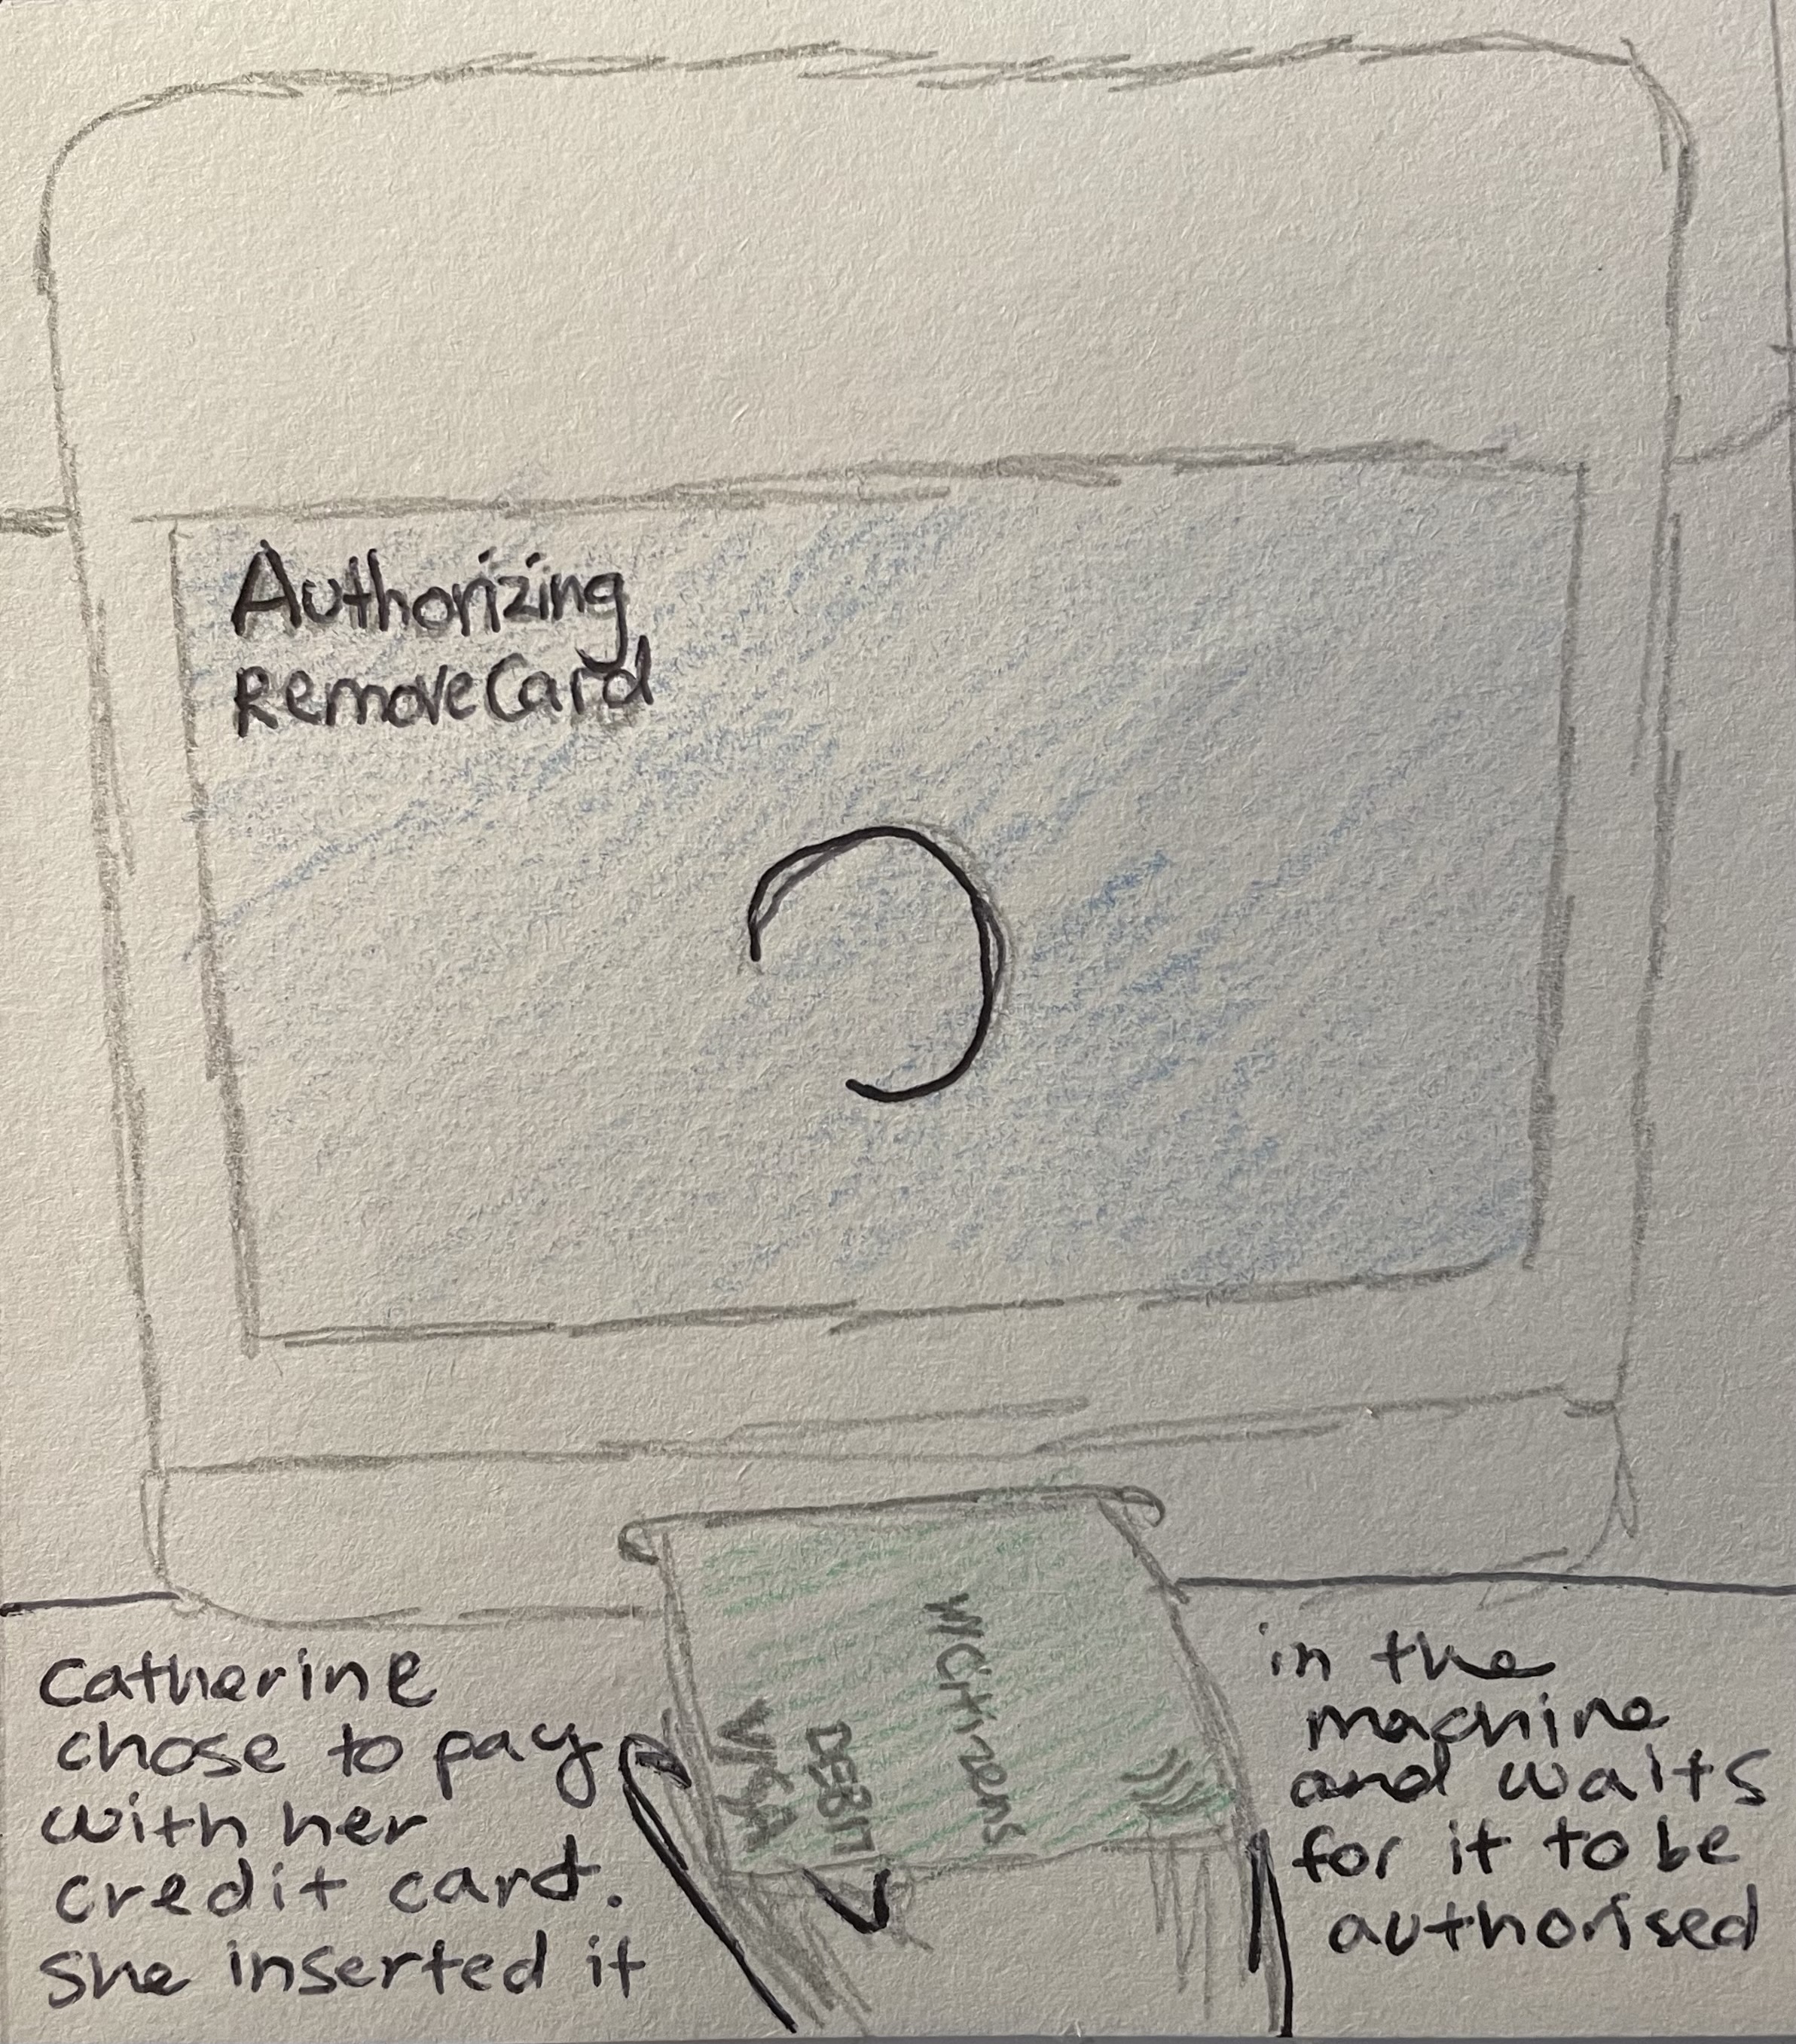 Authorizing
Remove Card
Citizens
DEBIT
VISA
Catherine
chose to pay
with her
credit card.
She inserted it
in the
machine
and waits
for it to be
authorised